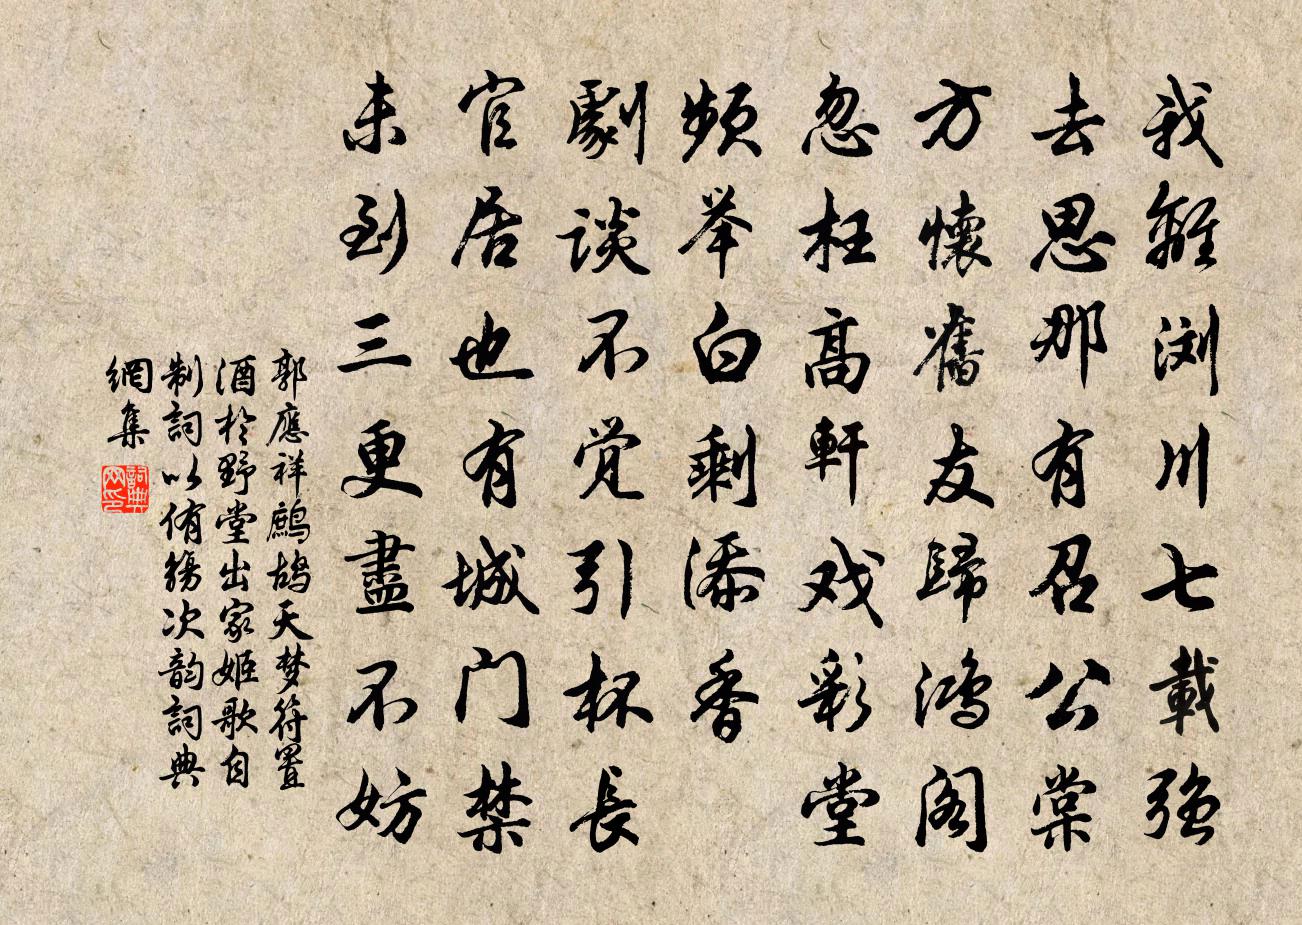 我離浏川七載強
去思那有召公棠
方懷舊友歸鴻閣
忽枉高軒戏彩堂
频举白剩添香
劇談不觉引杯長
官居也有城门禁
未到三更盡不妨
郭應祥鷓鴣天梦符置
酒於野堂出家姬歌自
制詞以侑觴次韵詞典
網集
詞典网印